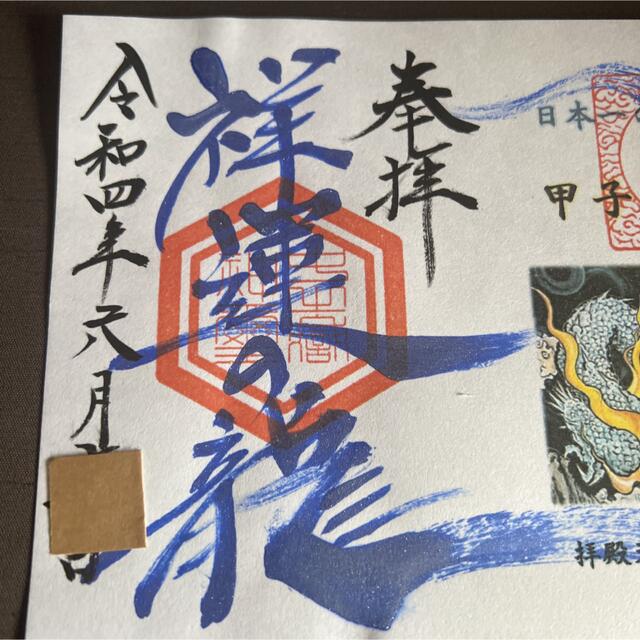 日本一の
甲子
拝殿
奉拝
祥運の龍
令和四年六月
日